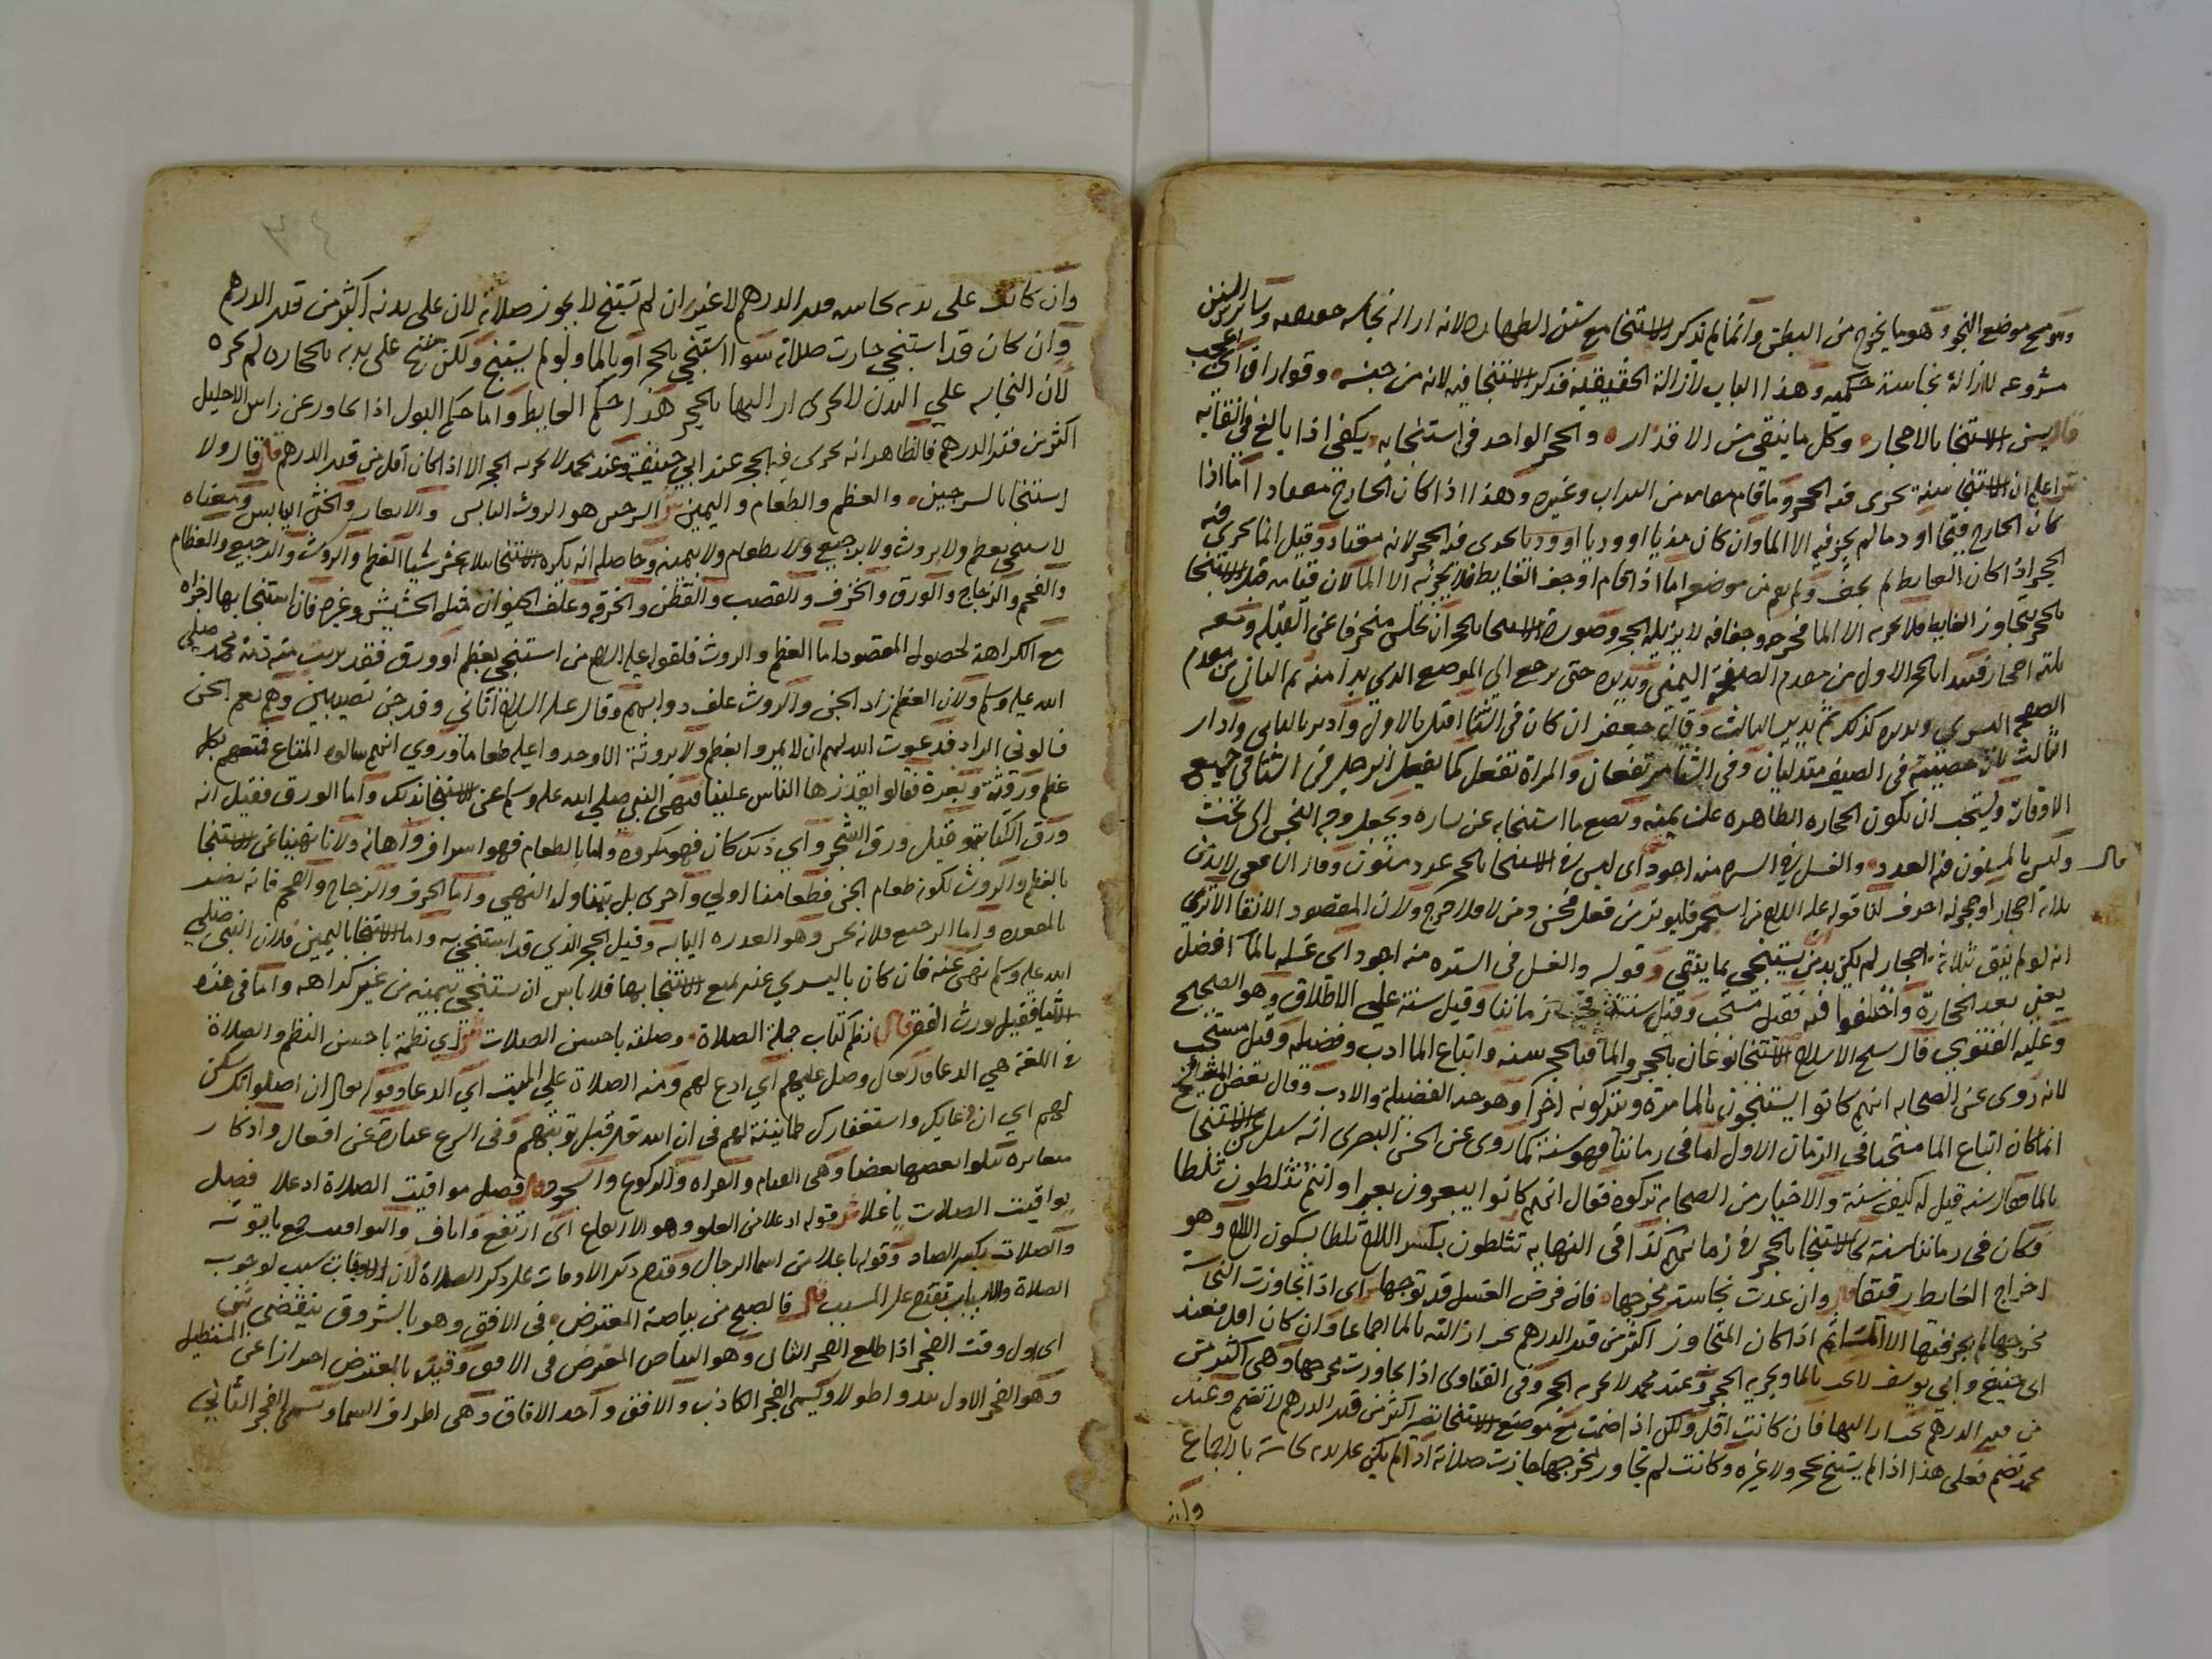 وهو مسح موضع النجو وهو ما يخرج من البطن وانما لم يذكر الاستنجا مع سنن الطهارة لانه ازالة نجاسة حقيقية وسائر السنن
مشروعه لازالة نجاسة حكميه وهذا الباب لازالة الحقيقية فذكر الاستنجا فيه لانه من جنسه وقوله
قال يسن الاستنجا بالاحجار وكل ما ينقي من الاقذار والحجر الواحد في استنجايه يكفي اذا بالغ في انقايه
اعلم ان الاستنجا سنة يجزي فيه الحجر وما قام مقامه من التراب وغيره وهذا اذا كان الخارج معتادا اما اذا
كان الخارج قيحا او دما لم يجز فيه الا الما وان كان مذيا او وديا يجزي فيه الحجر لانه معتاد وقيل انما يجزي فيه
الحجر اذا كان الغايط لم يجف ولم يقم من موضعه اما اذا قام او جف الغايط فلا يجزئه الا الما لان قيامه قبل الاستنجا
بالحجر يتجاوز الغايط فلا يجزيه الا الما فخرجه وجفافه لا يزيله الحجر وصورة الاستنجا بالحجر ان يجلس منحرفا عن القبلة ومعه
ثلثة احجار فيبدا بالحجر الاول من مقدم الصفحة اليمنى ويديره حتى يرجع الى الموضع الذي بدا منه ثم الثاني من مقدم
الصفحه اليسرى ويديره كذلك ثم يدير الثالث وقال جعفر ان كان في الشتا اقبل بالاول وادبر بالثاني وادار
الثالث لان خصيتيه في الصيف متدليتان وفي الشتا مرتفعتان والمراة تفعل كما يفعل الرجل في الشتا في جميع
الاوقات ويستحب ان يكون الحجاره الطاهره عن يمينه ويضع ما استنجا به عن يساره ويجعل وجه النجس الى تحت
قال وليس بالمسنون فيه العدد والغسل في السره منه اجود اي ليس في الاستنجا بالحجر عدد مسنون وقال الشافعي لا بد من
ثلاثة احجار او حجر له ثلاثة احرف لنا قوله عليه السلام من استجمر فليوتر من فعل فحسن ومن لا فلا حرج ولان المقصود الانقا الا ترى
انه لو لم ينق بثلاثة احجار لم يكن بد من ان يستنجي بما ينقي وقوله والغسل في السترة منه اجود اي غسله بالما افضل
يعني بعد الحجارة واختلفوا فيه فقيل مستحب وقيل سنة في زماننا وقيل سنة على الاطلاق وهو الصحيح
وعليه الفتوى قال شيخ الاسلام الاستنجا نوعان بالحجر والما فبالحجر سنه واتباع الما ادب وفضيله وقيل مستحب
لانه روى عن الصحابه انهم كانوا يستنجون بالما مرة ويتركونه اخرا وهو حد الفضيلة والادب وقال بعض المشايخ
انما كان اتباع الما مستحبا في الزمان الاول اما في زماننا فهو سنة كما روى عن الحسن البصرى انه سئل عن الاستنجا
بالما فقال سنه قيل له كيف سنة والاخيار من الصحابه تركوه فقال انهم كانوا يبعرون بعرا وانتم تثلطون ثلطا
فكان في زماننا سنة كالاستنجا بالحجر في زمانهم كذا في النهايه تثلطون بكسر اللام ثلطا بسكون اللام وهو
اخراج الغايط رقيقا قال وان عدت نجاسة مخرجها فان فرض الغسل قد توجها اي اذا تجاوزت النجاسة
مخرجها لم يجز فيها الا الما ثم اذا كان المتجاوز اكثر من قدر الدرهم يجب ازالته بالما اجماعا وان كان اقل فعند
ابي حنيفة وابي يوسف لا يجب بالما ويجزيه الحجر وعند محمد لا يجزيه الحجر وفي الفتاوى اذا تجاوزت مخرجها وهي اكثر من
من قدر الدرهم يجب ازالتها فان كانت اقل ولكن اذا ضمت مع موضع الاستنجا تصير اكثر من قدر الدرهم لا تضم وعند
محمد تضم فعلى هذا اذا لم يستنج بحجر ولا غيره وكانت لم تجاوز مخرجها جازت صلاته اذا لم يكن على بدنه نجاسة بالاجماع
وان
وان كانت على بدنه نجاسه قدر الدرهم لا غير ان لم يستنج لا يجوز صلاته لان على بدنه اكثر من قدر الدرهم
وان كان قد استنجي جازت صلاته سوا استنجي بالحجر او بالما ولو لم يستنج ولكن مسح على بدنه بالحجاره لم يجزه
لان النجاسه على البدن لا يجزى ازالتها بالحجر هذا حكم الغايط واما حكم البول اذا تجاوز عن راس الاحليل
اكثر من قدر الدرهم فالظاهر انه يجزى فيه الحجر عند ابي حنيفة وعند محمد لا يجزيه الحجر الا اذا كان اقل من قدر الدرهم قال ولا
استنجا بالسرجين والعظم والطعام واليمين ش السرجين هو الروث اليابس والابعار والخثى اليابس ومعناه
لا يستنجى بعظم ولا بروث ولا برجيع ولا بطعام ولا بيمينه وحاصله انه يكره الاستنجا بثلاثة عشر شيا العظم والروث والرجيع والطعام
والفحم والزجاج والورق والخزف والقصب والقطن والخرقه وعلف الحيوان مثل الحشيش وغيره فان استنجا بها اجزاه
مع الكراهة لحصول المقصود اما العظم والروث فلقوله عليه السلام من استنجى بعظم او روث فقد برئت منه ذمة محمد صلى
الله عليه وسلم ولان العظم زاد الجن والروث علف دوابهم وقال عليه السلام اتاني وفد جن نصيبين وهم نعم الجن
فسالوني الزاد فدعوت الله لهم ان لا يمروا بعظم ولا بروثة الا وجدوا عليه طعاما وروي انهم سالوه المتاع فمتعهم بكل
عظم وروثة وبعرة فقالوا يقذرها الناس علينا فنهى النبي صلى الله عليه وسلم عن الاستنجا بذلك واما الورق فقيل انه
ورق الكتابة وقيل ورق الشجر واي ذلك كان فهو مكروه واما بالطعام فهو اسراف واهانه ولانا نهينا عن الاستنجا
بالعظم والروث لكونه طعام الجن فطعامنا اولي واحرى بل يتناوله النهي واما الخزف والزجاج والفحم فانه يضر
بالمقعده واما الرجيع فلانه نجس وهو العذره اليابسه وقيل الحجر الذي قد استنجى به واما الاستنجا باليمين فلان النبي صلى
الله عليه وسلم نهى عنه فان كان باليسرى عذر يمنع الاستنجا بها فلا باس ان يستنجي بيمينه من غير كراهه واما في هذه
الاشيا فقيل يورث الفقر قال نظم كتاب جملة الصلاة وصلته باحسن الصلات ش اي نظمته باحسن النظم والصلاة
في اللغة هي الدعا قال تعالى وصل عليهم اي ادع لهم ومنه الصلاة على الميت اي الدعا وقوله تعالى ان صلواتك سكن
لهم اي ان دعايك واستغفارك طمانينة لهم في ان الله قد قبل توبتهم وفي الشرع عبارة عن افعال واذكار
متغايرة يتلوا بعضها بعضا وهى القيام والقراه والركوع والسجود قال فصل مواقيت الصلاة اذ علا فصل
يواقيت الصلات يا علا ش قوله اذ علا من العلو وهو الارتفاع اى ارتفع واناف واليواقيت جمع ياقوتة
والصلات بكسر الصاد وقوله يا علا من اسما الرجال وقدم ذكر الاوقات على ذكر الصلاة لان الاوقات سبب لوجوب
الصلاة والاسباب تتقدم على المسبب قال فالصبح من بياضه المعترض في الافق وهو بالشروق ينقضي ش
اى اول وقت الفجر اذا طلع الفجر الثانى وهو البياض المعترض في الافق وقيد بالمعترض احترازا عن المستطيل
وهو الفجر الاول يبدو اطولا ويسمى الفجر الكاذب والافق واحد الافاق وهى اطراف السما ويسمى الفجر الثاني